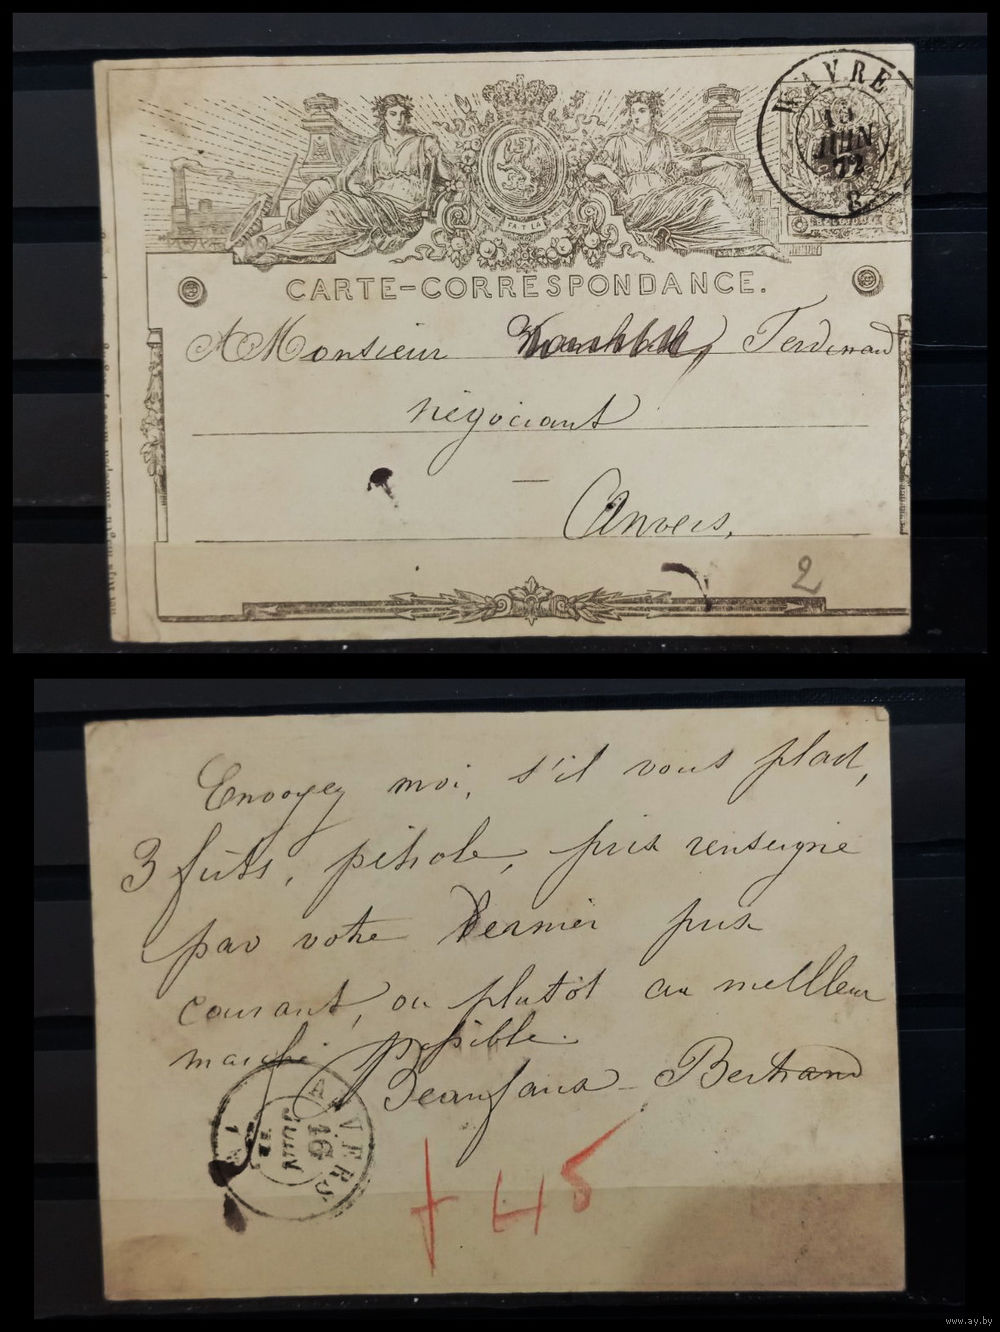 WAVRE
15
JUIN
72
8
FAIT LA
CARTE-CORRESPONDANCE.
A Monsieur Ferdinand
négociant
Anvers.
2
Envoyez moi, s'il vous plait,
3 futs, pétrole, prix renseigné
par votre dernier prix
courant, ou plutôt au meilleur
marché possible.
Beaufaux - Bertrand
ANVERS
16
JUIN
1
+ 45
www.ay.by